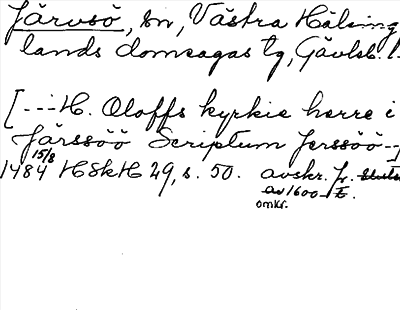 Järvsö, sn, Västra Hälsing
lands domsagas tg, Gävleb. l.
[--- H. Oloffs kyrkie herre i
Järssöö Scriptum Jerssöö --]
15/8
1484 HSkH 29, s. 50. avskr. fr. slutet
av 1600-t.
omkr.